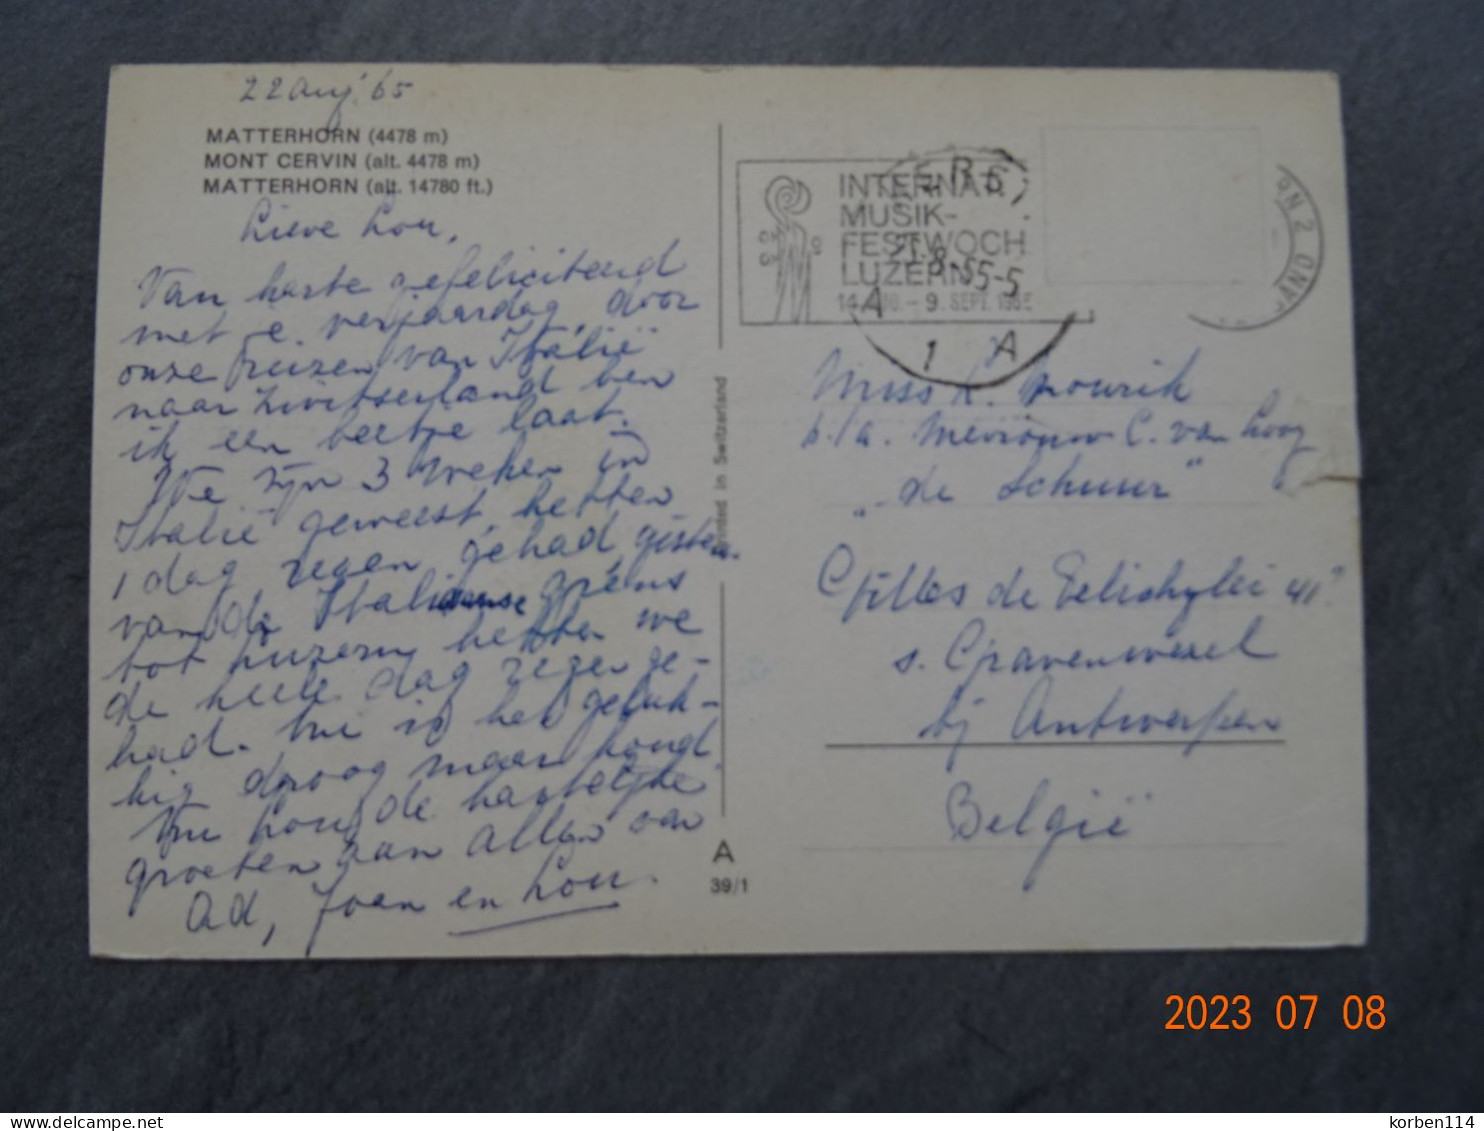 22 Aug. '65
MATTERHORN (4478 m)
MONT CERVIN (alt. 4478 m)
MATTERHORN (alt. 14780 ft.)
Lieve Lou,
Van harte gefeliciteerd
met je verjaardag, door
onze reizen van Italië
naar Zwitserland ben
ik een beetje laat.
We zijn 3 weken in
Italië geweest, hebben
1 dag regen gehad, gisteren.
van de Italiaanse grens
tot Luzern hebben we
de hele dag regen ge-
had. Nu is het geluk-
kig droog maar koud
Nu Lou, de hartelijke
groeten aan allen van
Ad, Joan en Lou.
Printed in Switzerland
A
39/1
INTERNAT.
MUSIK-
FESTWOCH
LUZERN
14. - 9. SEPT. 1965
1 A
Miss L. Mourik
p/a. Mevrouw C. van Looy
"de Schuur"
Gilles de
s. Gravenwesel
bij Antwerpen
België
2023 07 08
korben114